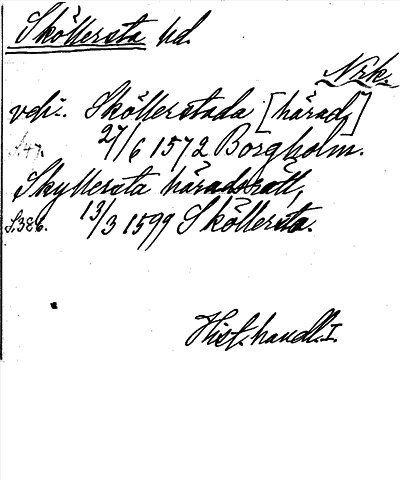 Sköllersta hd.
Nrk.
vdi: Sköllerstada [härad]
27/6 1572 Borgholm.
Skyllersta häradsrätt,
S.386. 13/3 1599 Sköllersta.
Hist. handl. I.